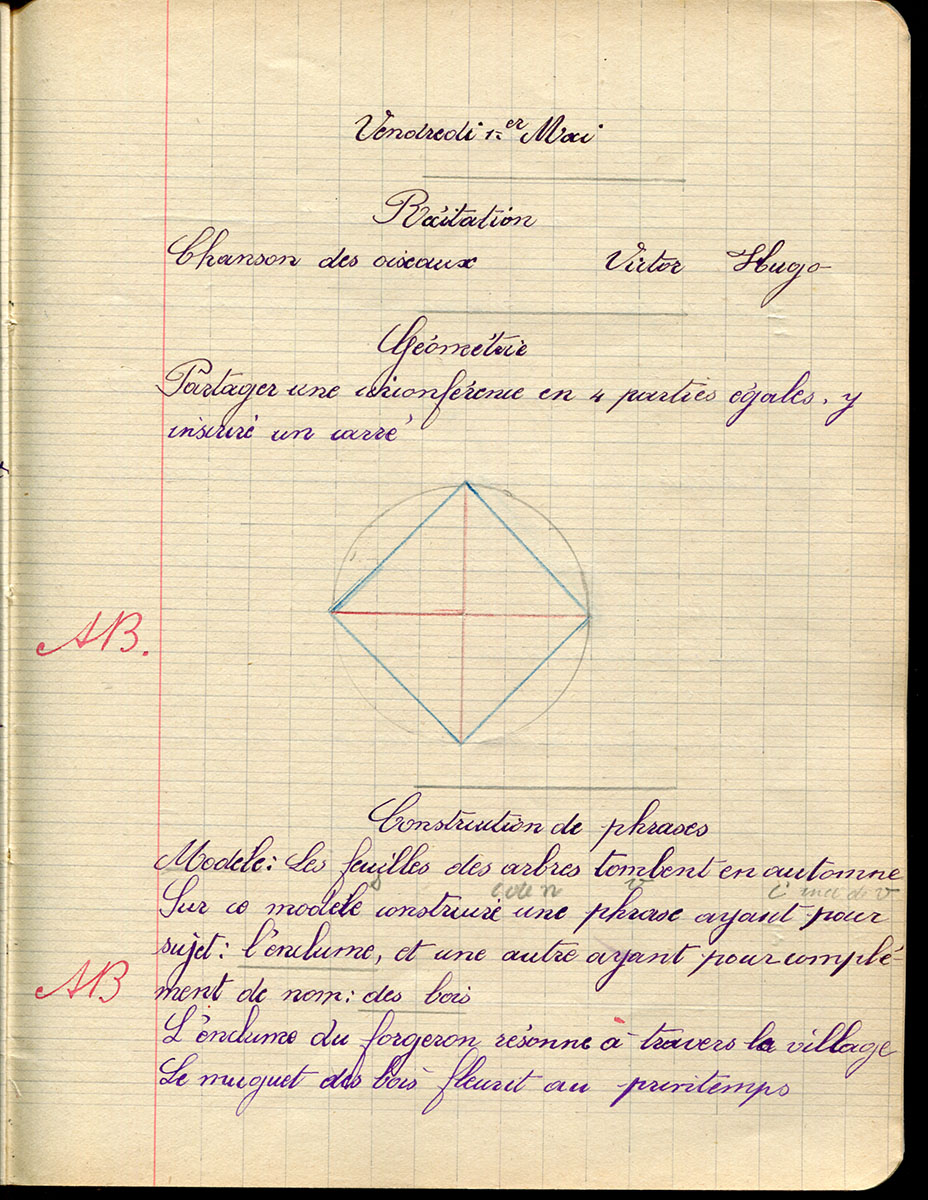 Vendredi 1er Mai
Récitation
Chanson des oiseaux Victor Hugo
Géométrie
Partager une circonférence en 4 parties égales, y
inscrire un carré
AB.
Construction de phrases
Modèle: Les feuilles des arbres tombent en automne
s c de n v
Sur ce modèle construire une phrase ayant pour
sujet: l'enclume, et une autre ayant pour complé-
AB
ment de nom: des bois
L'enclume du forgeron résonne à travers le village
Le muguet des bois fleurit au printemps